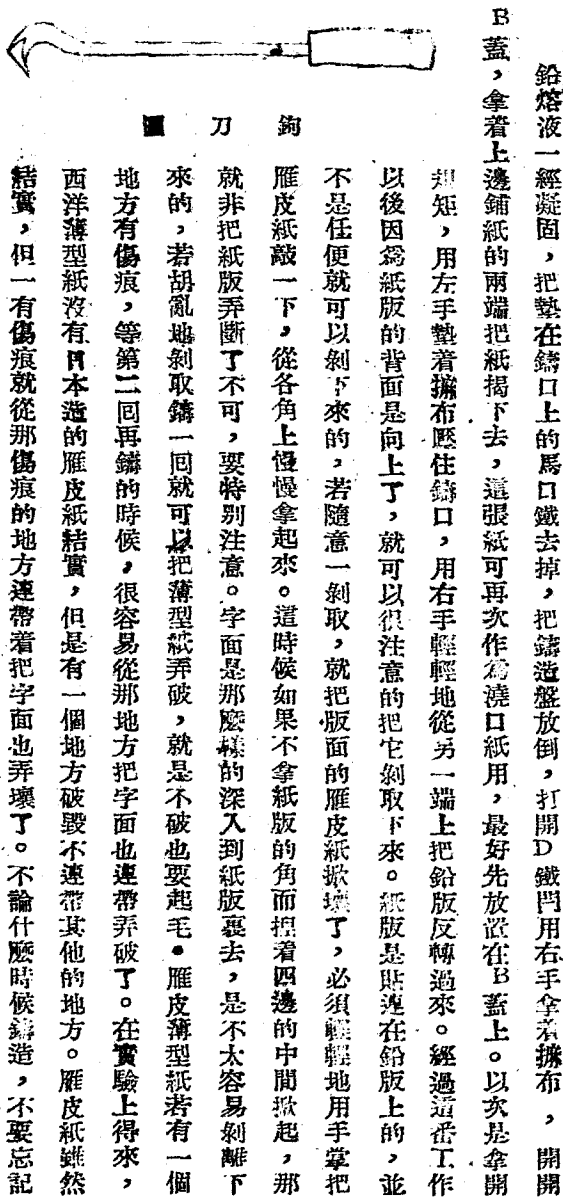 鉛熔液一經凝固，把墊在鑄口上的馬口鐵去掉，把鑄造盤放倒，打開D鐵門用右手拿着擦布，開開
B蓋，拿着上邊鋪紙的兩端把紙揭下去，這張紙可再次作爲澆口紙用，最好先放置在B蓋上。以次是拿開
規矩，用左手墊着擦布壓住鑄口，用右手輕輕地從另一端上把鉛版反轉過來。經過這番工作
以後因爲紙版的背面是向上了，就可以很注意的把它剝取下來。紙版是貼連在鉛版上的，並
不是任便就可以剝下來的，若隨意一剝取，就把版面的雁皮紙掀壞了，必須輕輕地用手掌把
雁皮紙敲一下，從各角上慢慢拿起來。這時候如果不拿紙版的角而揑着四邊的中間掀起，那
就非把紙版弄斷了不可，要特別注意。字面是那麽樣的深入到紙版裏去，是不太容易剝離下
來的，若胡亂地剝取鑄一回就可以把薄型紙弄破，就是不破也要起毛。雁皮薄型紙若有一個
地方有傷痕，等第二回再鑄的時候，很容易從那地方把字面也連帶弄破了。在實驗上得來，
西洋薄型紙沒有日本造的雁皮紙結實，但是有一個地方破毀不連帶其他的地方。雁皮紙雖然
結實，但一有傷痕就從那傷痕的地方連帶着把字面也弄壞了。不論什麽時候鑄造，不要忘記
鉤刀圖